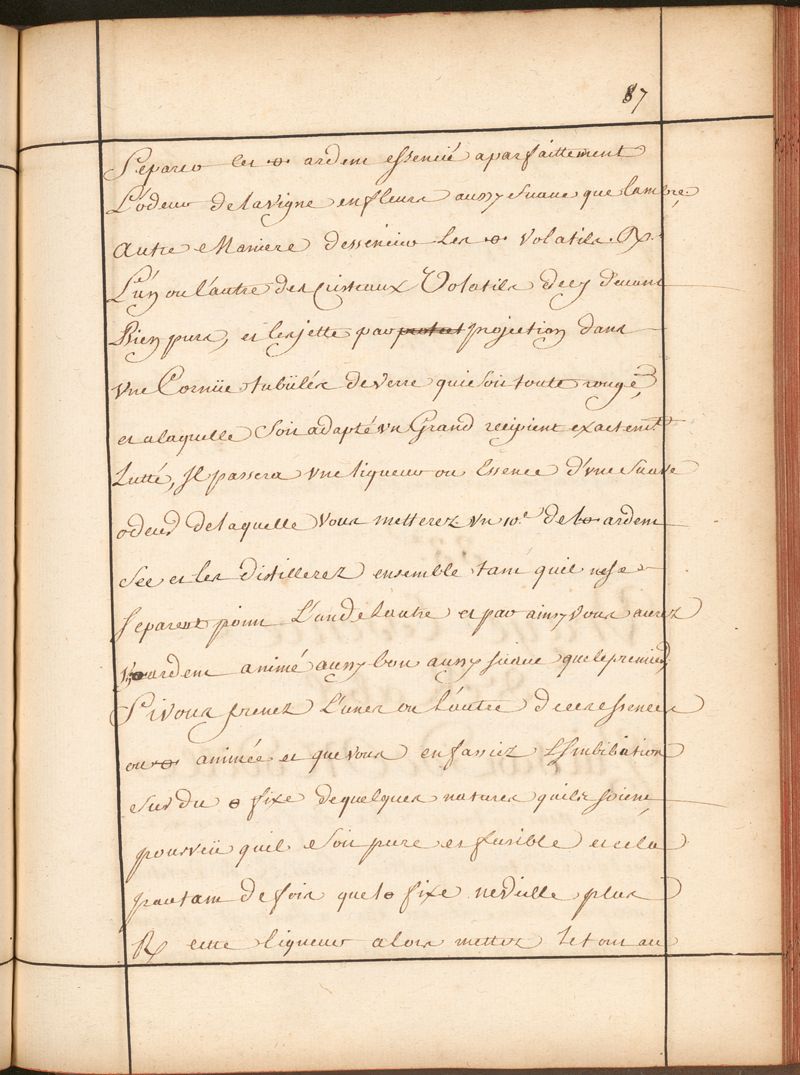 87
Separer les ⊖ ardem essencié a parfaittement
L'odeur de la vigne en fleurs aussy suaue que lambre.
Autre Maniere dessencier Les ⊖ volatils. ℞
L'un ou l'autre des Cristeaux Volatils de cy deuant
Bien purs, et les jette par projection dans
vne Cornüe tubülée de verre qui soit toute rouge,
et a laquelle soit adapté vn Grand recipient exactemt.
Lutté, Il passera vne liqueur ou Essence d'vne suaue
odeur de laquelle vous metterez vn 10.e de ardem
et les distillerez ensemble tant quil ne se
separent point L'un de lautre et par ainsy vous aurez
ardem animé aussy bon aussy suaue que le premier,
Si vous prenez L'une ou l'autre de ces essences
ou ⊖ animée et que vous en fassiez L'Imbibition
sur du ⊖ fixe de quelques natures quils soient
pourveü quil soit pure et fusible et cela
par tam de fois que le fixe ne veille plus
℞ cette liqueur alors mettez le tout au